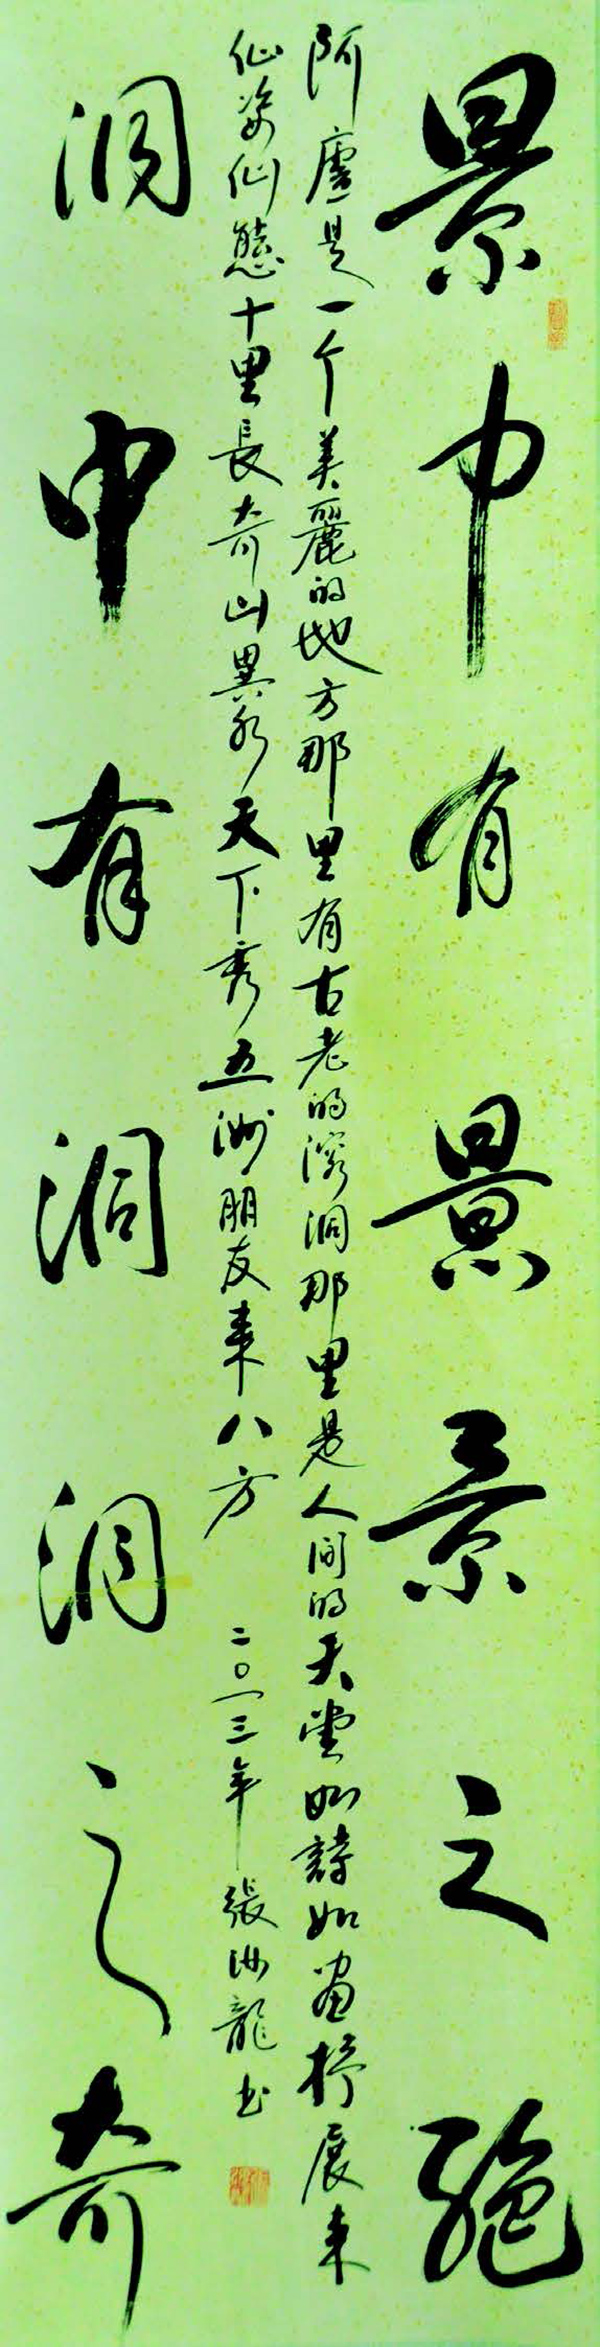 景中有景景之絶
阿廬是一个美麗的地方那里有古老的溶洞那里是人间的天堂如詩如画抒展来
仙姿仙態十里長奇山異水天下秀五洲朋友来八方
二〇一三年 張汝龍书
洞中有洞洞之奇